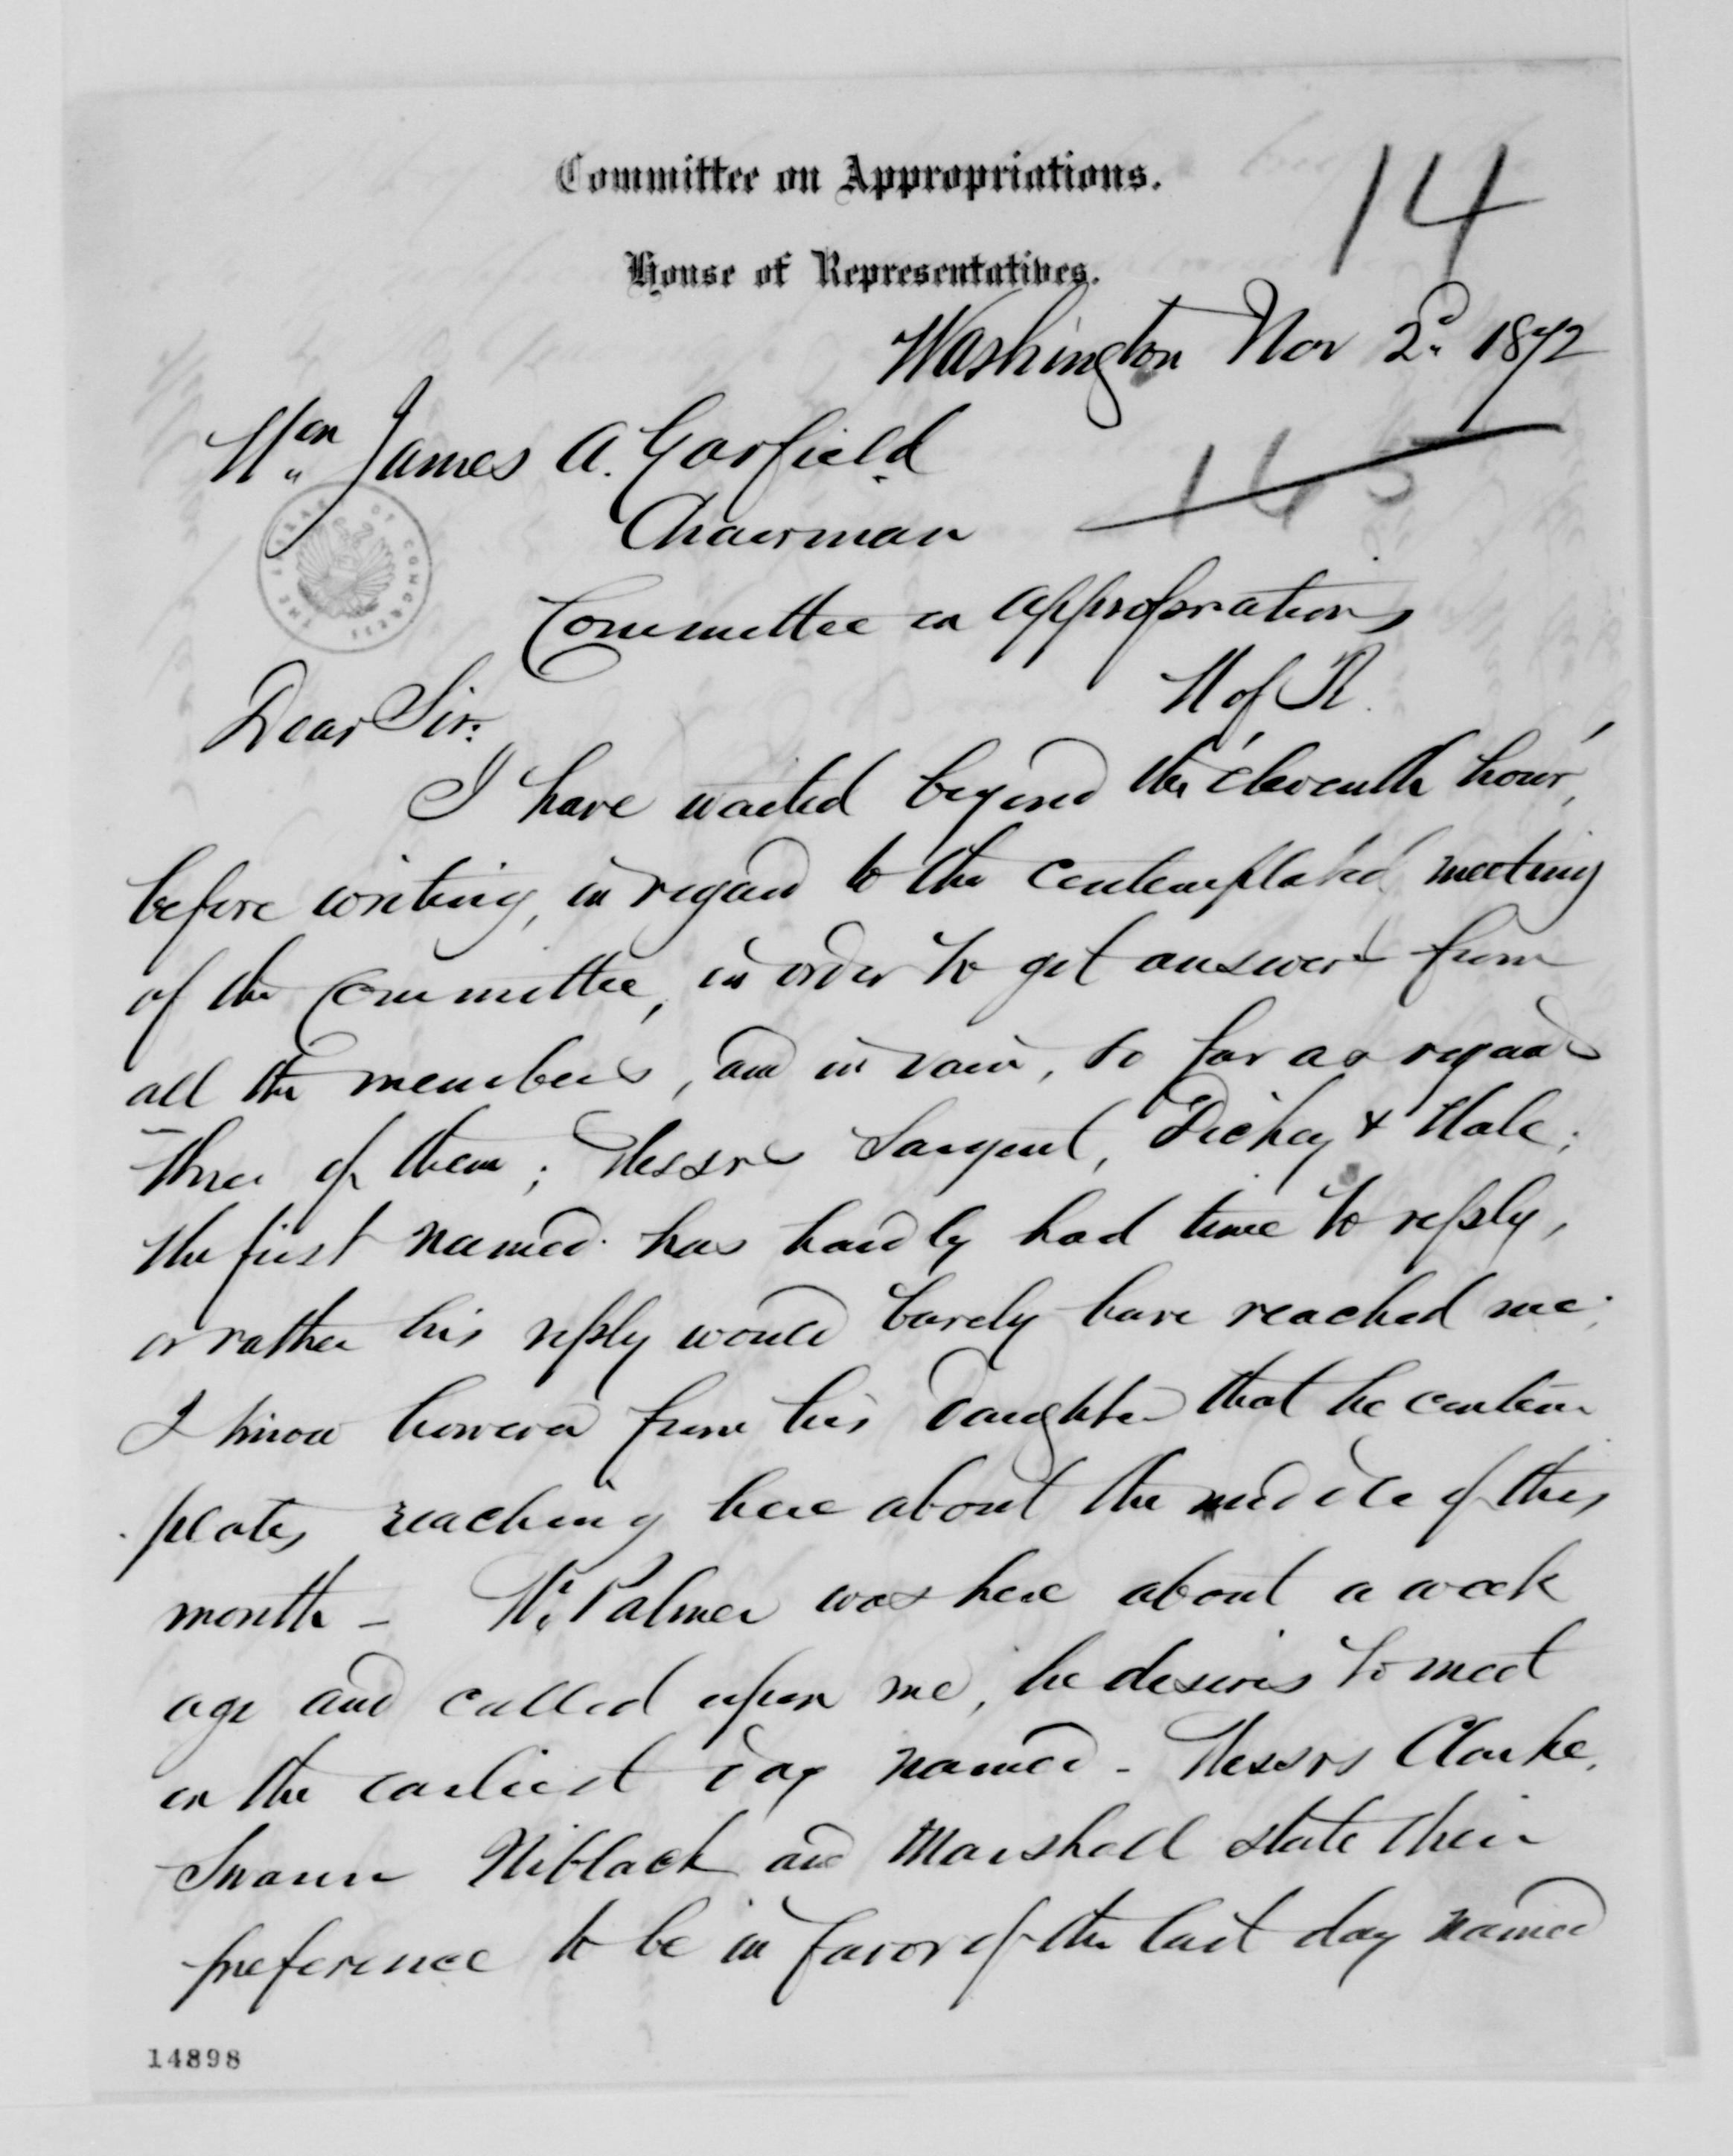 Committee on Appropriations.
14
House of Representatives.
Washington Nov 2d. 1872
Hon James A. Garfield
145
Chairman
Committee on Appropriations
H of R.
Dear Sir:
I have waited beyond the 'eleventh hour',
before writing, in regard to the contemplated meeting
of the Committee, in order to get answers from
all the members, and in vain, so far as regards
three of them; Messrs Sargent, Dickey & Hale;
the first named has hardly had time to reply,
or rather his reply would barely have reached me;
I know however from his daughter that he contem
plates reaching here about the middle of this
month - Mr. Palmer was here about a week
ago and called upon me, he desires to meet
on the earliest day named - Messrs Clarke,
Swann Niblack and Marshall state their
preference to be in favor of the last day named
THE LIBRARY OF CONGRESS
14898